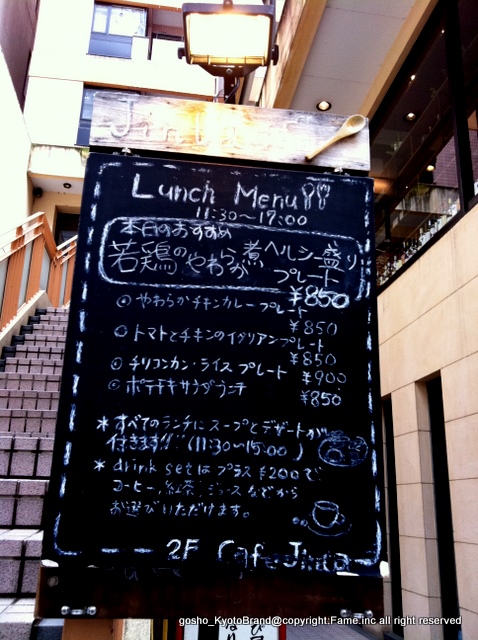 Lunch Menu
11:30~17:00
本日のおすすめ
若鶏のやわらか煮ヘルシー盛り
プレート
¥850
◎ やわらかチキンカレープレート
¥850
◎ トマトとチキンのイタリアンプレート
¥850
◎ チリコンカン・ライスプレート
¥900
◎ ポテチキサラダランチ
¥850
* すべてのランチにスープとデザートが
付きます!! (11:30~15:00)
* drink setはプラス¥200で
コーヒー、紅茶、ジュースなどから
お選びいただけます。
2F Cafe Jinta
gosho_KyotoBrand@copyright:Fame.inc all right reserved